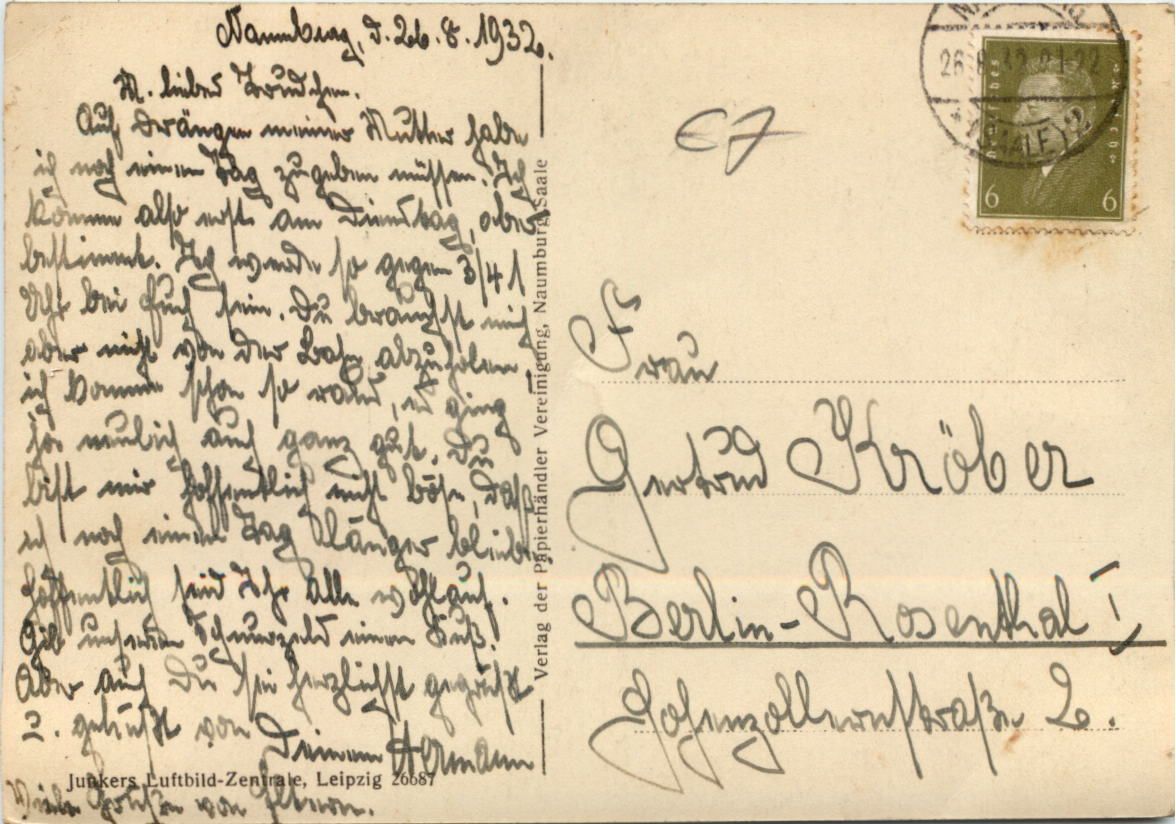 Naumburg, d. 26.8.1932.
M. liebes Trudchen.
Auf Drängen meiner Mutter habe
ich noch einen Tag zugeben müssen. Ich
komme also erst am Dienstag, aber
bestimmt. Ich werde so gegen 3/4 1
Uhr bei Euch sein. Du brauchst mich
aber nicht von der Bahn abzuholen,
ich komme schon so raus, es ging
ja neulich auch ganz gut. Du
bist mir hoffentlich nicht böse, daß
ich noch einen Tag länger bleibe.
Hoffentlich seid Ihr Alle wohlauf.
Gib unserem einen Kuß.
Aber auch Du sei herzlichst gegrüßt
u. geküßt von
Deinem Hermann
Viele Grüße von Eltern.
Junkers Luftbild-Zentrale, Leipzig 26687
Verlag der Papierhändler Vereinigung, Naumburg/Saale
(SAALE) 2
6 6
Frau
Gertrud Kröber
Berlin-Rosenthal I
Hohenzollernstraße 2.